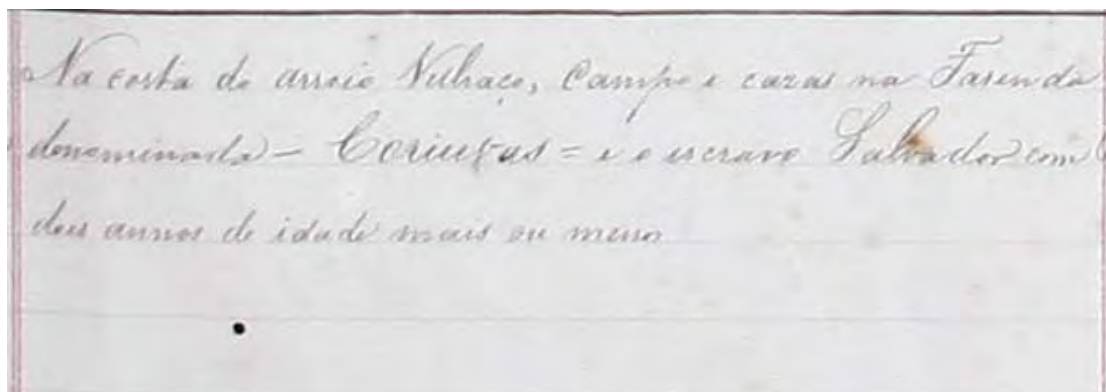 Na costa do arroio Velhaco, Campo e cazas na Fasenda
denominada - Coriutas = e o escravo Salvador com
dous annos de idade mais ou menos